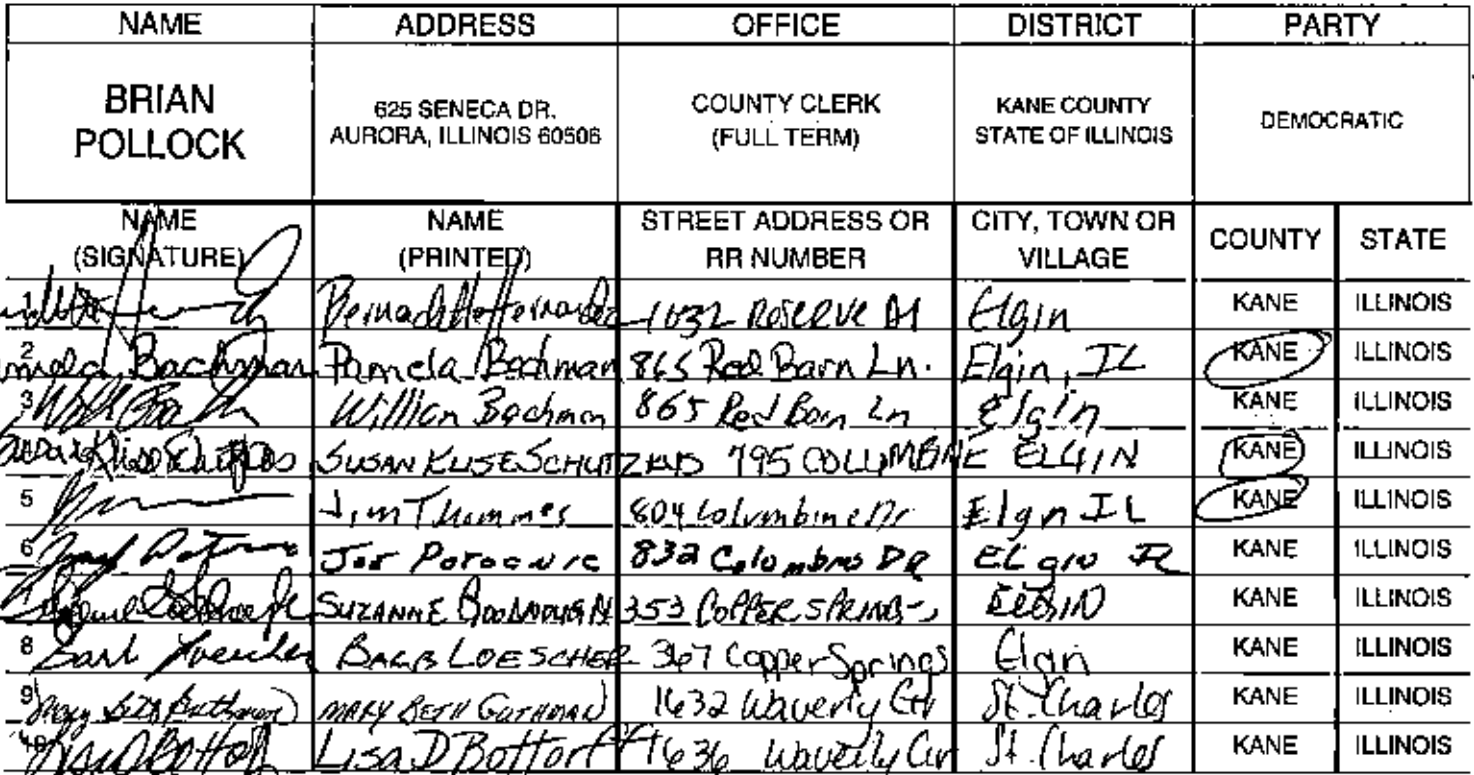 NAME ADDRESS OFFICE DISTRICT PARTY
BRIAN POLLOCK 625 SENECA DR. AURORA, ILLINOIS 60506 COUNTY CLERK (FULL TERM) KANE COUNTY STATE OF ILLINOIS DEMOCRATIC
NAME (SIGNATURE) NAME (PRINTED) STREET ADDRESS OR RR NUMBER CITY, TOWN OR VILLAGE COUNTY STATE
1 1032 Reserve Elgin KANE ILLINOIS
2 Pamela Bachman Pamela Bachman 865 Red Barn Ln. Elgin, IL KANE ILLINOIS
3 Bachman 865 Red Barn Ln Elgin KANE ILLINOIS
SUSAN 795 ELGIN KANE ILLINOIS
5 Jim Thommes 804 Columbine Dr Elgn IL KANE ILLINOIS
6 832 DR KANE ILLINOIS
SUZANNE 353 COPPER SPRINGS ELGIN KANE ILLINOIS
8 Barb Loescher BARB LOESCHER 367 Copper Springs Elgin KANE ILLINOIS
9 MARY BETH 1632 Waverly Cir St. Charles KANE ILLINOIS
10 Lisa D Bottorff 1636 Waverly Cir St. Charles KANE ILLINOIS